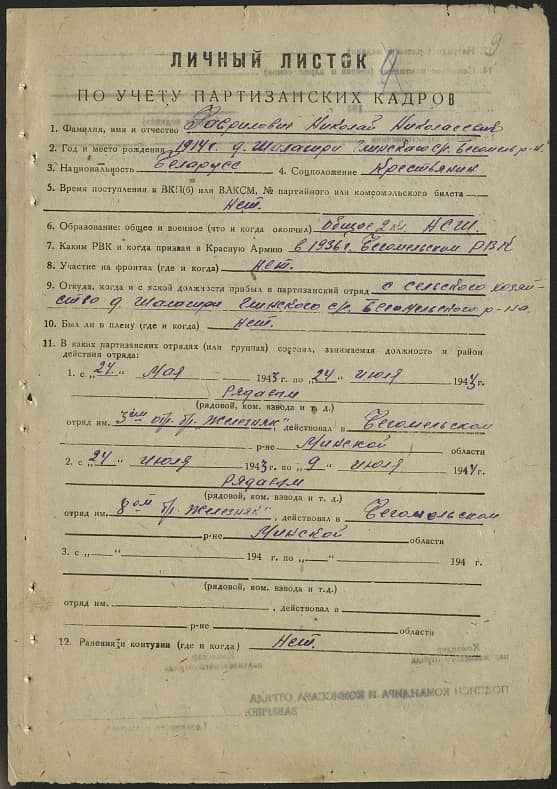 9
ЛИЧНЫЙ ЛИСТОК
ПО УЧЕТУ ПАРТИЗАНСКИХ КАДРОВ
1. Фамилия, имя и отчество Гаврилович Николай Николаевич
2. Год и место рождения 1914 г. д. Шалагири Глинского с/с. Бегомль р-н.
3. Национальность Беларусс 4. Соцположение Крестьянин
5. Время поступления в ВКП(б) или ВЛКСМ, № партийного или комсомольского билета
Нет.
6. Образование: общее и военное (что и когда окончил) общое 2 кл. НСШ.
7. Каким РВК и когда призван в Красную Армию в 1936 г. Бегомльским РВК
8. Участие на фронтах (где и когда) Нет.
9. Откуда, когда и с какой должности прибыл в партизанский отряд с сельского хозяй-
ство д. Шалагири Глинского с/с. Бегомльского р-на.
10. Был ли в плену (где и когда) Нет.
11. В каких партизанских отрядах (или группах) состоял, занимаемая должность и район
действия отряда:
1. с „24“ Мая 1943 г. по „24“ июля 1943 г.
Рядавым
(рядовой, ком. взвода и т. д.)
отряд им. 3ем отр. бр. Железняк“, действовал в Бегомельском
р-не Минской области
2. с „24“ июля 1943 г. по „9“ июля 1944 г.
Рядавым
(рядовой, ком. взвода и т. д.)
отряд им. 8ом бр. Железняк“, действовал в Бегомльском
р-не Минской области
3. с „—“ 194 г. по „—“ 194 г.
(рядовой, ком. взвода и т.д.)
отряд им. , действовал в
р-не области
12. Ранения и контузии (где и когда) Нет.
ПОДПИСИ КОМАНДИРА И КОМИССАРА ОТРЯДА
ЗАВЕРЯЮ: